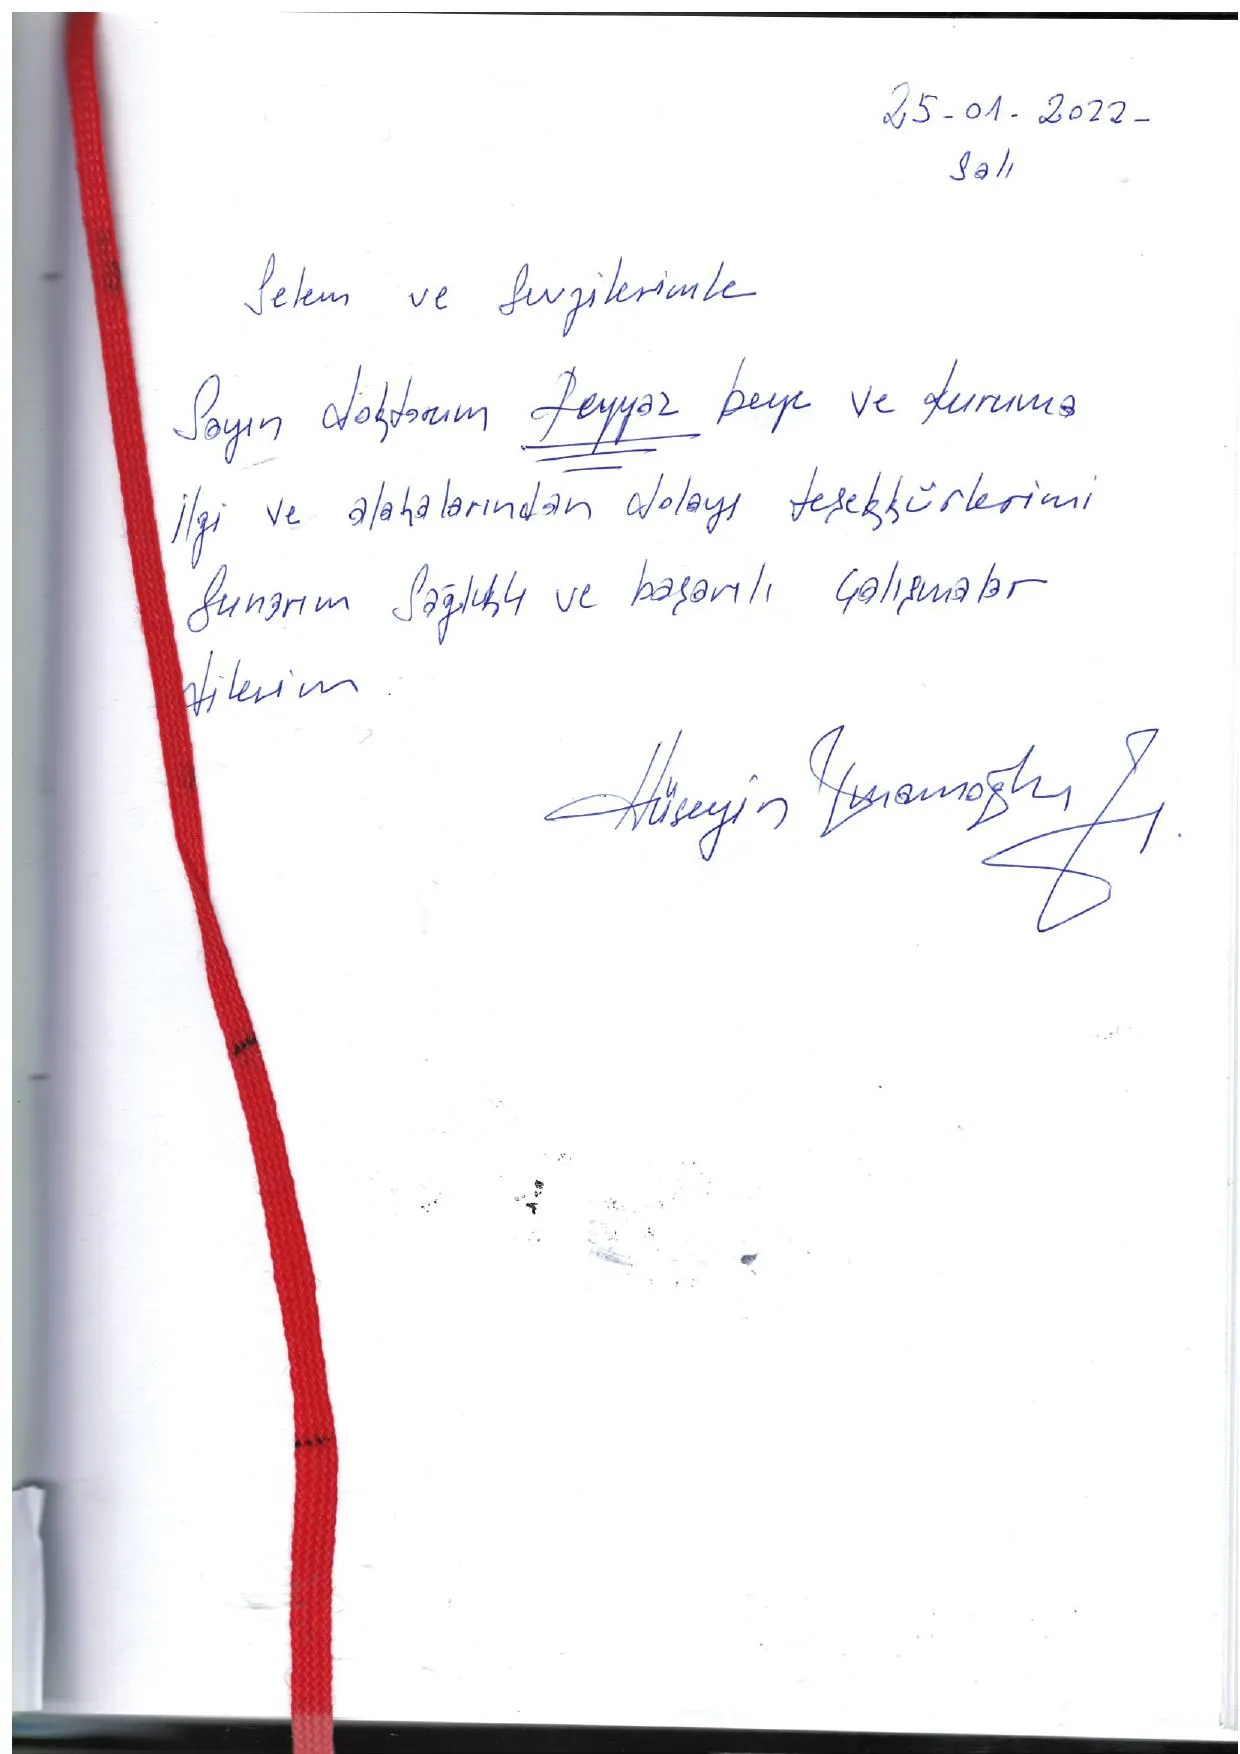 25-01-2022-
Salı
Selam ve Sevgilerimle
Sayın doktorum Feyyaz beye ve kuruma
ilgi ve alakalarından dolayı teşekkürlerimi
Sunarım Sağlıklı ve başarılı Çalışmalar
dilerim.
Hüseyin